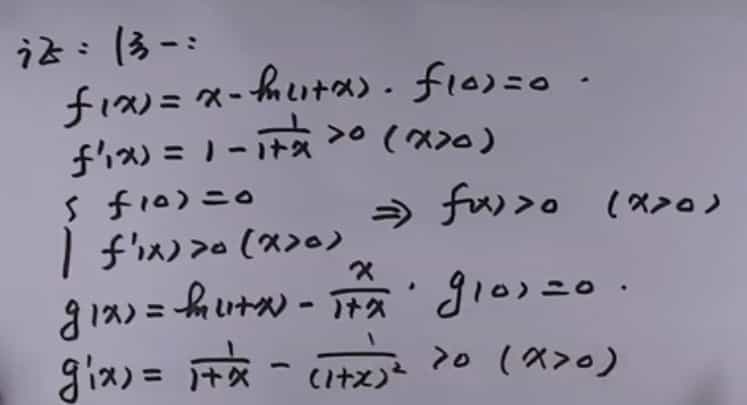 证：法一：
f(x) = x - ln(1+x). f(0) = 0.
f'(x) = 1 - 1/(1+x) > 0 (x>0)
{ f(0) = 0 ⇒ f(x) > 0 (x>0)
f'(x) > 0 (x>0)
g(x) = ln(1+x) - x/(1+x). g(0) = 0.
g'(x) = 1/(1+x) - 1/(1+x)² > 0 (x>0)